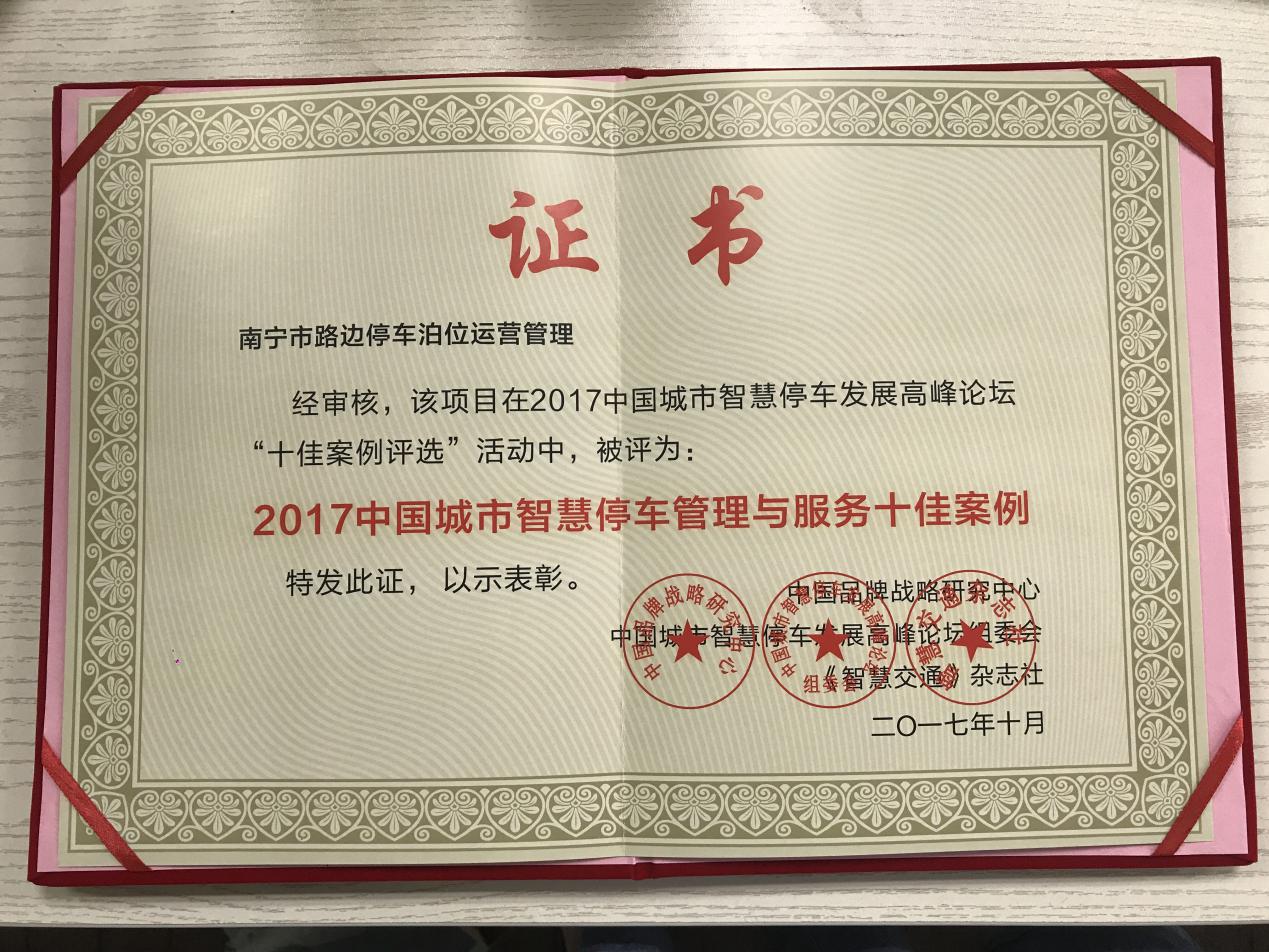 证 书
南宁市路边停车泊位运营管理
经审核，该项目在2017中国城市智慧停车发展高峰论坛
“十佳案例评选”活动中，被评为：
2017中国城市智慧停车管理与服务十佳案例
特发此证，以示表彰。
中国品牌战略研究中心
中国城市智慧停车发展高峰论坛组委会
《智慧交通》杂志社
二〇一七年十月
中国品牌战略研究中心
中国城市智慧停车发展高峰论坛
组委会
智慧交通杂志社